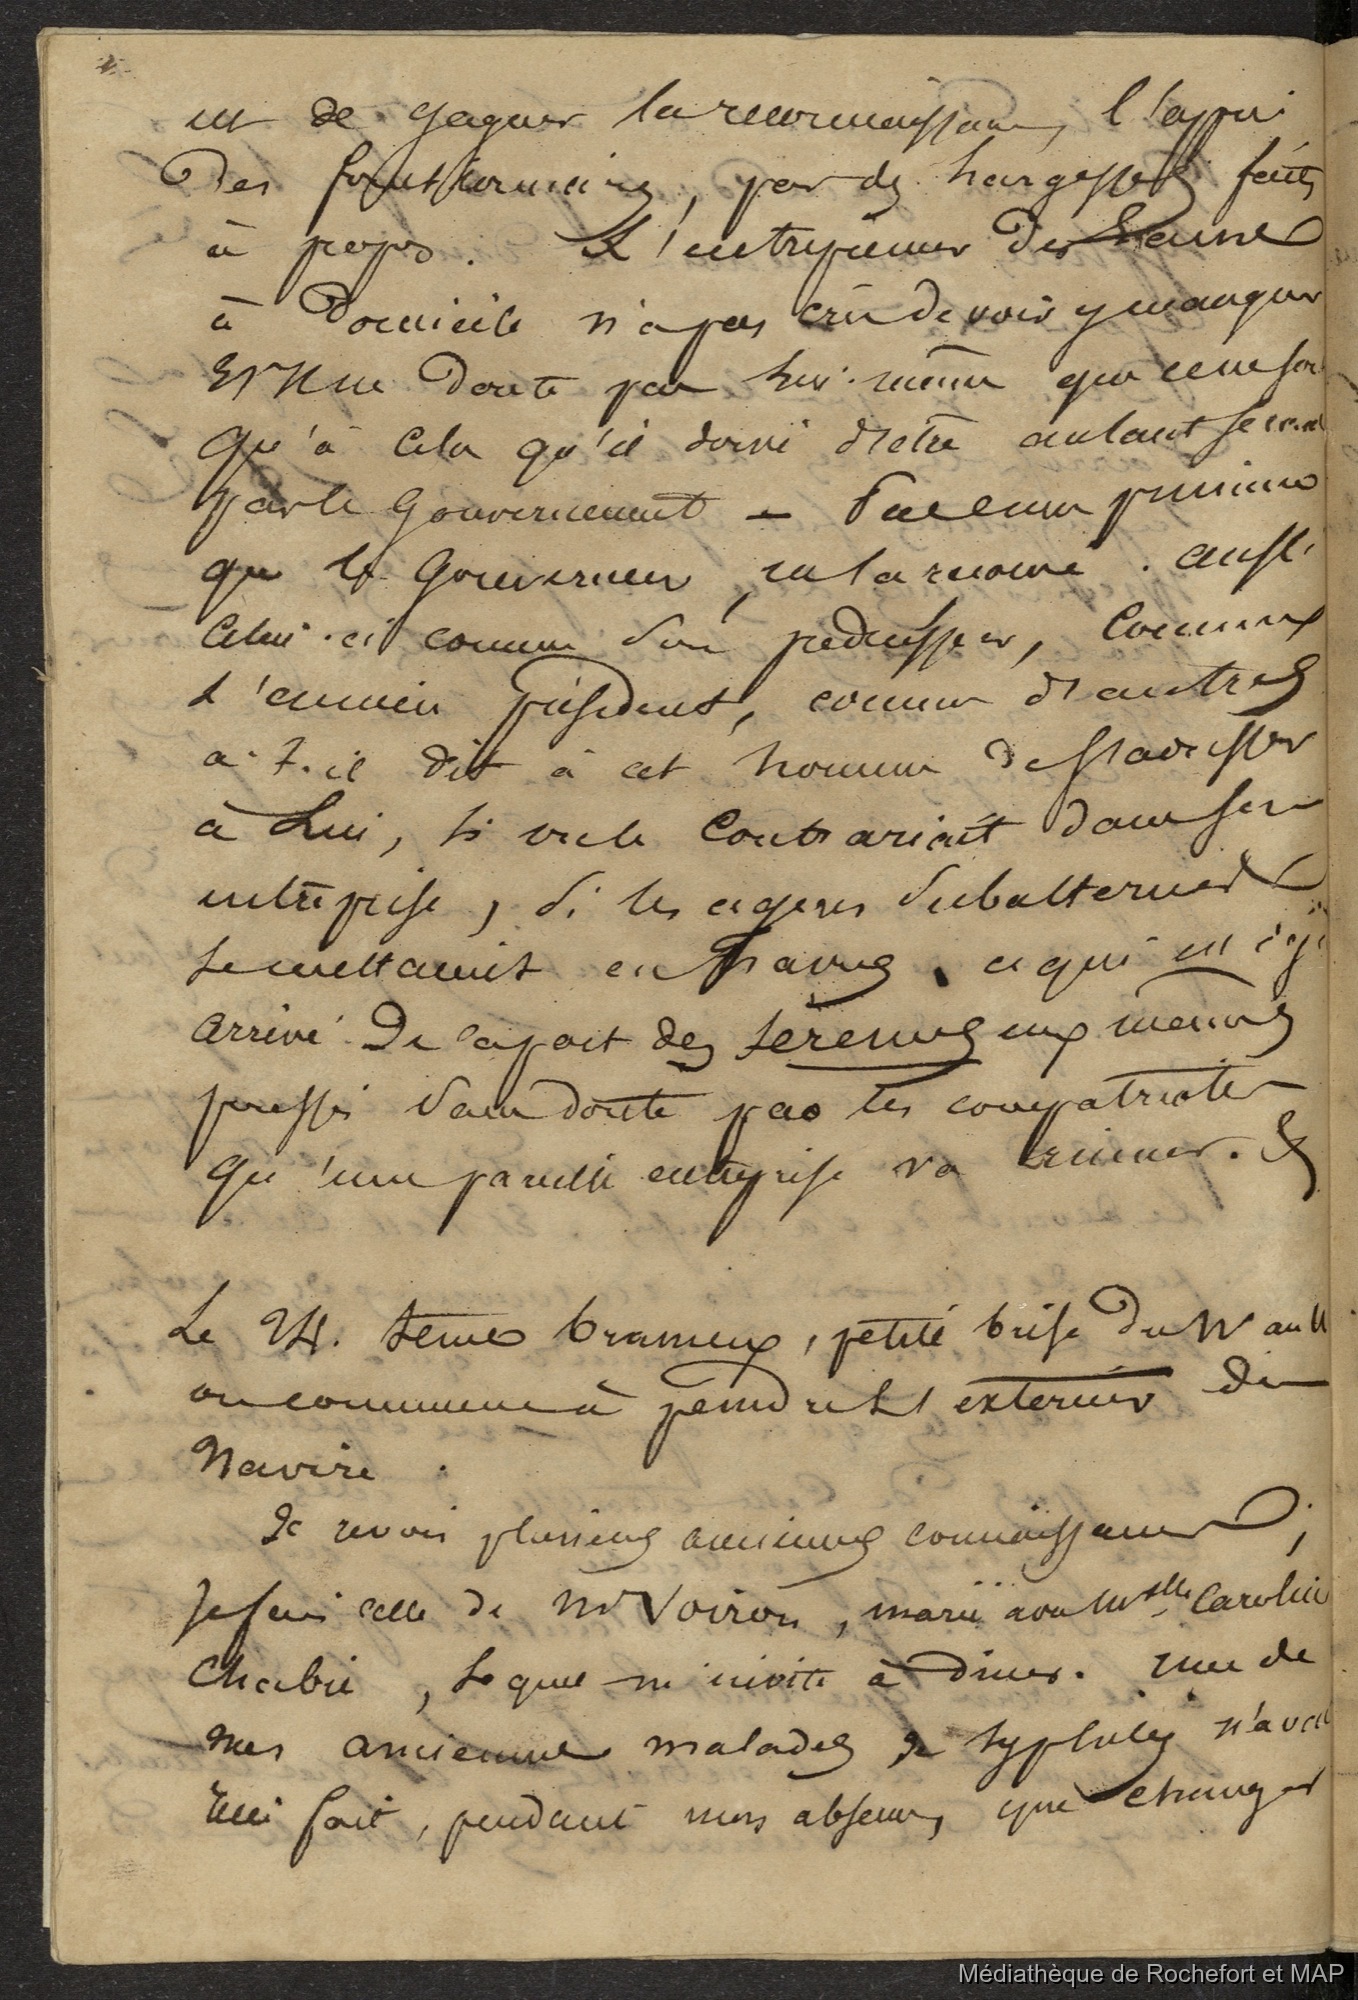 est de gagner la reconnaissance, l'appui
Des fonctionnaires, par des largesses faites
à propos. L'entrepreneur Des
à Domicile n'a pas crû devoir y manquer
Doute par lui-même que ce ne soit
qu'à cela qu'il doive d'être autant
par le Gouvernement —
que le Gouverneur, aussi
celui-ci comme son prédécesseur, comme
L'ancien Président, comme d'autres
a-t-il dit à cet homme de s'adresser
à Lui, si on le contrariait dans son
entreprise, si les agens subalternes
se mettaient en travers, ce qui est déjà
arrivé De la part des sérères eux mêmes
poussés sans doute par les compatriotes
qu'une pareille entreprise va ruiner. &
Le 24. tems brumeux, petite brise Du N au
on commence à peindre l'extérieur du
Navire.
Je revois plusieurs anciennes connaissances;
Je fais celle de Mr Voiron, marié avec Mselle Caroline
Chabié, lequel m'invite à diner. une de
mes anciennes malades de syphilis n'avait
rien fait, pendant mon absence, que changer
Médiathèque de Rochefort et MAP